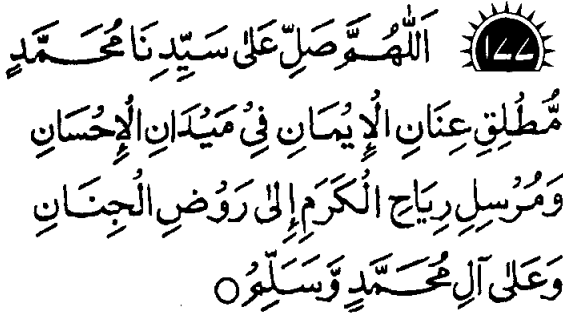 ١٧٧ اَللّٰهُمَّ صَلِّ عَلٰى سَيِّدِنَا مُحَمَّدٍ
مُّطْلِقِ عِنَانِ الْإِيْمَانِ فِيْ مَيْدَانِ الْإِحْسَانِ
وَمُرْسِلِ رِيَاحِ الْكَرَمِ إِلٰى رَوْضِ الْجِنَانِ
وَعَلٰى آلِ مُحَمَّدٍ وَّسَلِّمْ ○